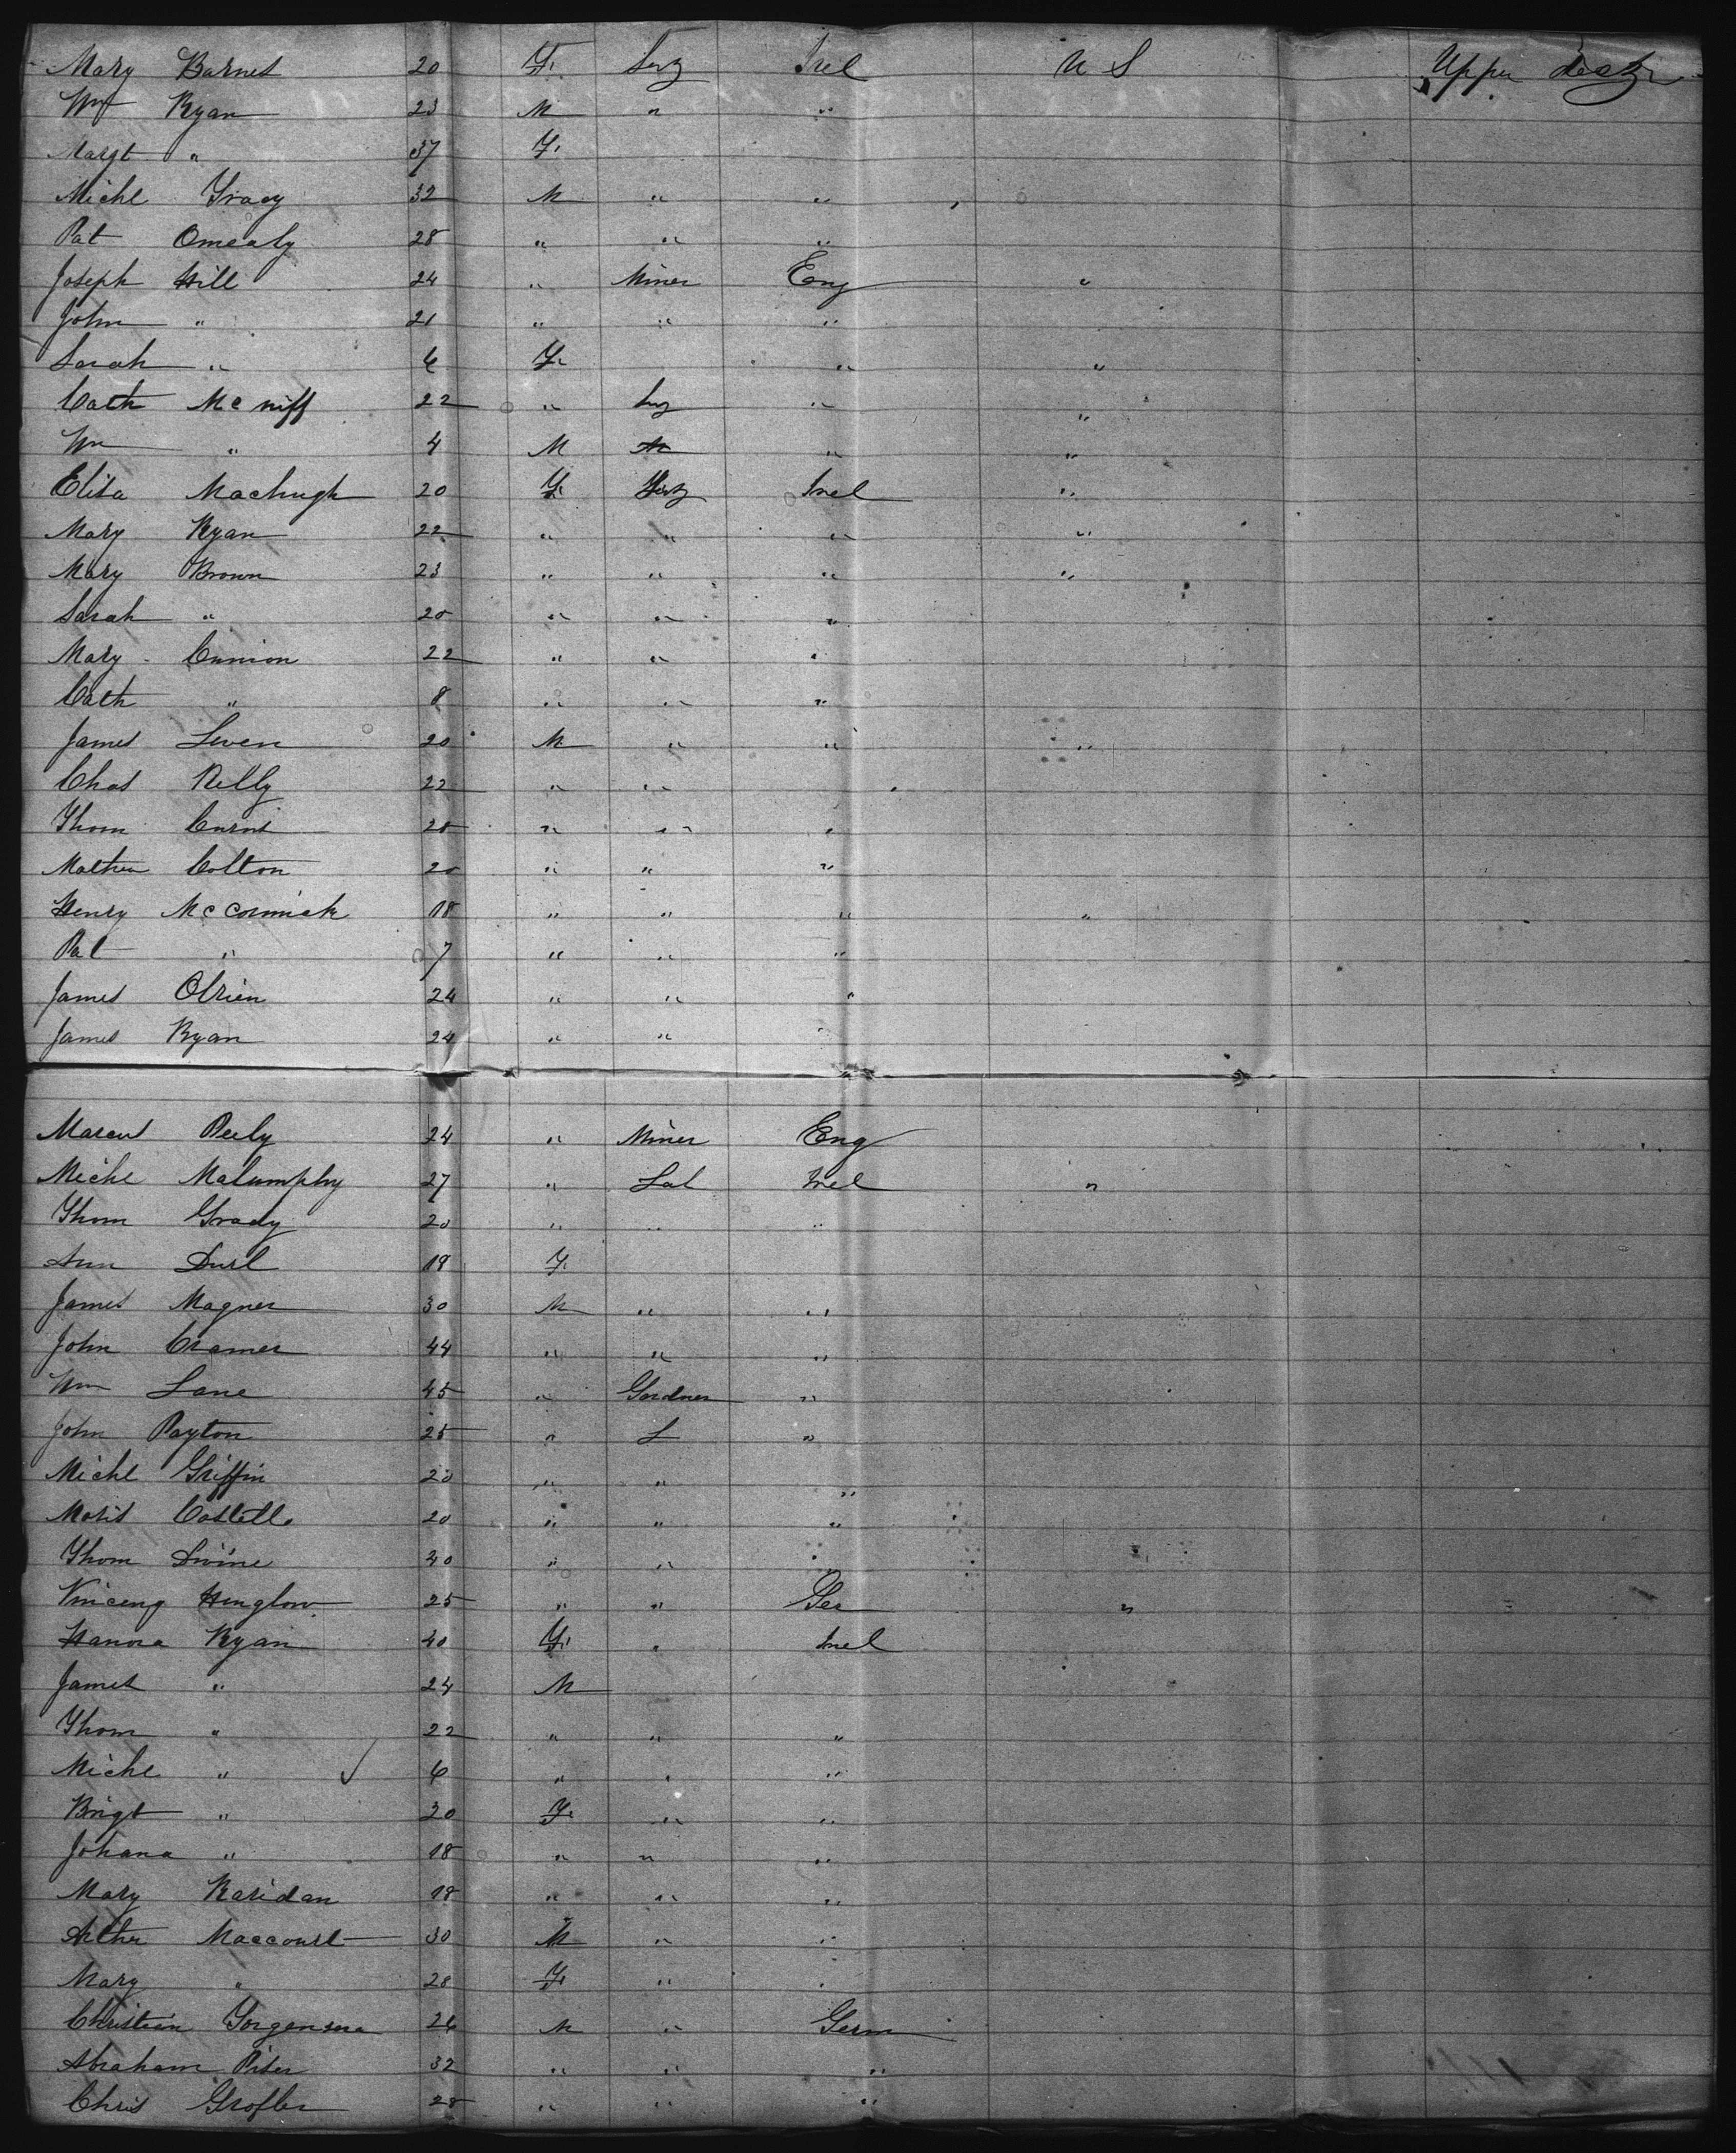 Mary Barnes 20 F. Serv Irel U S Upper Deck
Wm Ryan 23 M " "
Margt " 37 F.
Michl Gracy 32 M " "
Pat Omealy 28 " " "
Joseph Hill 24 " Miner Eng "
John " 21 " " "
Sarah " 6 F. " "
Cath Mc niff 22 " " "
Wm " 4 M " "
Elisa Machugh 20 F. Irel "
Mary Ryan 22 " " " "
Mary Brown 23 " " " "
Sarah " 20 " " "
Mary Cunion 22 " " "
Cath " 8 " " "
James Leven 20 M " " "
Chas Relly 22 " " "
Thom Curns 28 " " "
Mathew Colton 20 " " "
Henry Mc Cormick 18 " " " "
Pat " 7 " " "
James Obrien 24 " " "
James Ryan 24 " " "
Marcus Peely 24 " Miner Eng
Michl Malumphy 27 " Lab Irel "
Thom Grady 20 " " "
Ann Durl 19 F.
James Magner 30 M " "
John Cramer 44 " " "
Wm Lane 45 " Gardner "
John Payton 25 " L "
Michl Griffin 20 " " "
Moris Costello 20 " " "
Thom Divine 40 " " "
Vinceng Hinglow 25 " " Ger "
Hanora Ryan 40 F. " Irel
James " 24 M
Thom " 22 " " "
Michl " 6 " " "
Brigt " 20 F. " "
Johana " 18 " " "
Mary Raridan 18 " " "
Arther Maccourt 30 M " "
Mary " 28 F. " "
Christian Jorgensen 26 M " Germ
Abraham Piter 32 " " "
Chris Grofler 28 " " "